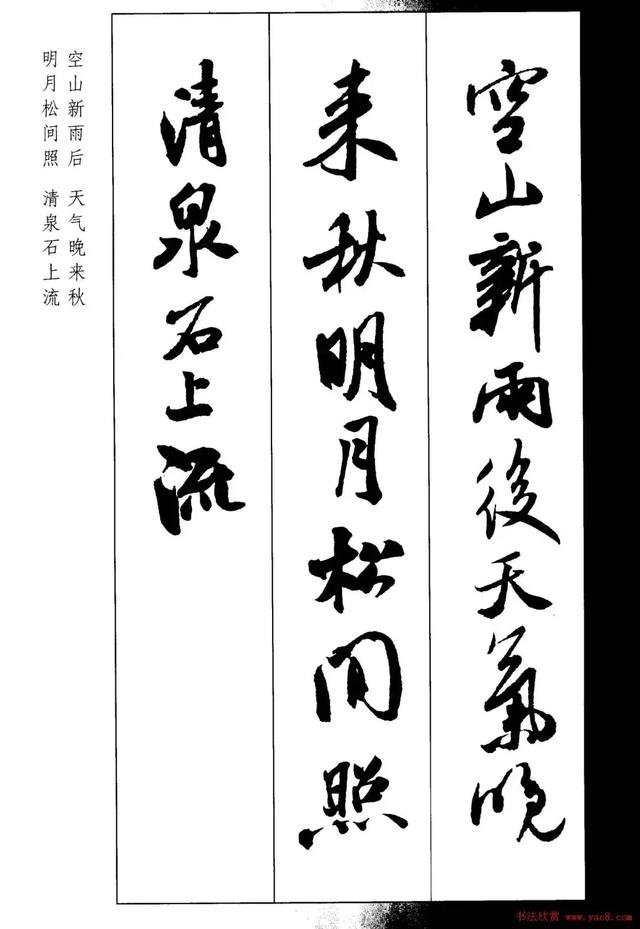 空山新雨後天氣晚
来秋明月松间照
清泉石上流
空山新雨后 天气晚来秋
明月松间照 清泉石上流
书法欣赏 www.yac8.com